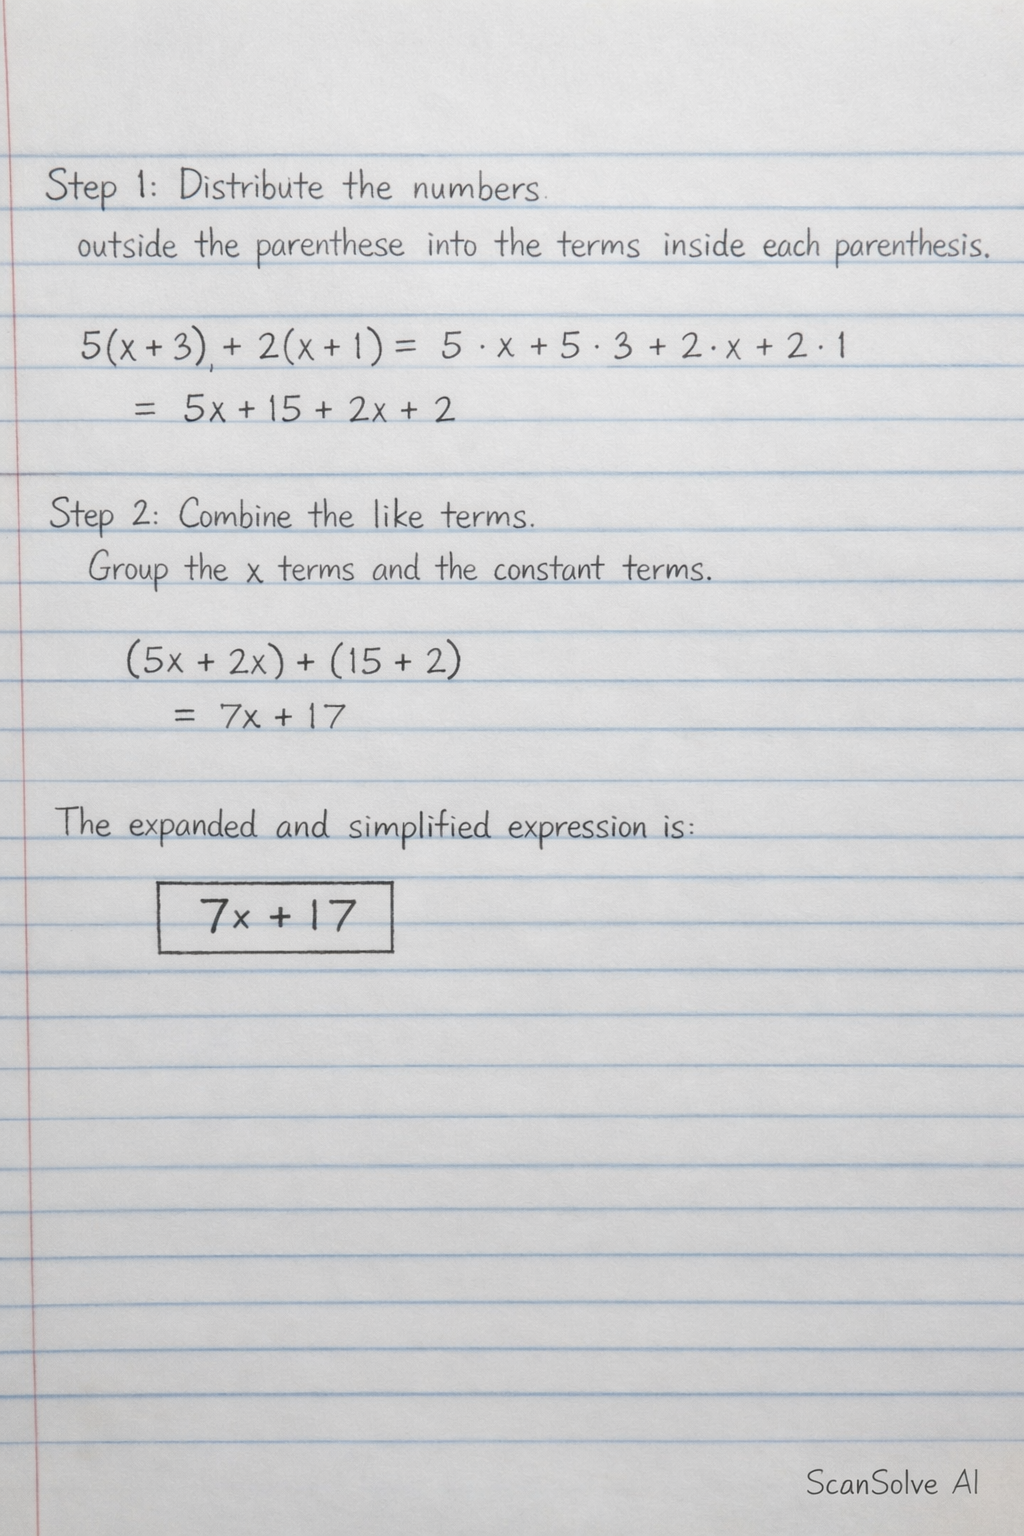 Step 1: Distribute the numbers.
outside the parenthese into the terms inside each parenthesis.
5(x + 3), + 2(x + 1) = 5 · x + 5 · 3 + 2 · x + 2 · 1
= 5x + 15 + 2x + 2
Step 2: Combine the like terms.
Group the x terms and the constant terms.
(5x + 2x) + (15 + 2)
= 7x + 17
The expanded and simplified expression is:
7x + 17
ScanSolve AI